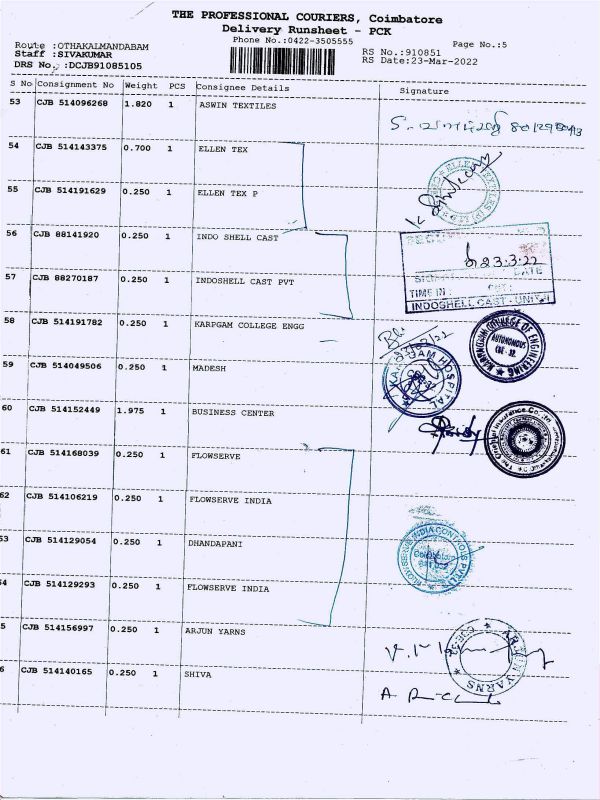 THE PROFESSIONAL COURIERS, Coimbatore
Delivery Runsheet - PCK
Phone No.:0422-3505555
Page No.:5
Route :OTHAKALMANDABAM
Staff :SIVAKUMAR
DRS No. :DCJB91085105
RS No.:910851
RS Date:23-Mar-2022
S No Consignment No Weight PCS Consignee Details Signature
53 CJB 514096268 1.820 1 ASWIN TEXTILES
54 CJB 514143375 0.700 1 ELLEN TEX
55 CJB 514191629 0.250 1 ELLEN TEX P
56 CJB 88141920 0.250 1 INDO SHELL CAST
23.3.22
DATE
57 CJB 88270187 0.250 1 INDOSHELL CAST PVT
TIME IN :
INDOSHELL CAST - UNIT-I
58 CJB 514191782 0.250 1 KARPGAM COLLEGE ENGG
KARPAGAM COLLEGE OF ENGINEERING
AUTONOMOUS
CBE - 32.
59 CJB 514049506 0.250 1 MADESH
HOSPITAL
60 CJB 514152449 1.975 1 BUSINESS CENTER
61 CJB 514168039 0.250 1 FLOWSERVE
62 CJB 514106219 0.250 1 FLOWSERVE INDIA
53 CJB 514129054 0.250 1 DHANDAPANI
FLOWSERVE INDIA CONTROLS PVT LTD
54 CJB 514129293 0.250 1 FLOWSERVE INDIA
5 CJB 514156997 0.250 1 ARJUN YARNS
ARJUN YARNS
6 CJB 514140165 0.250 1 SHIVA